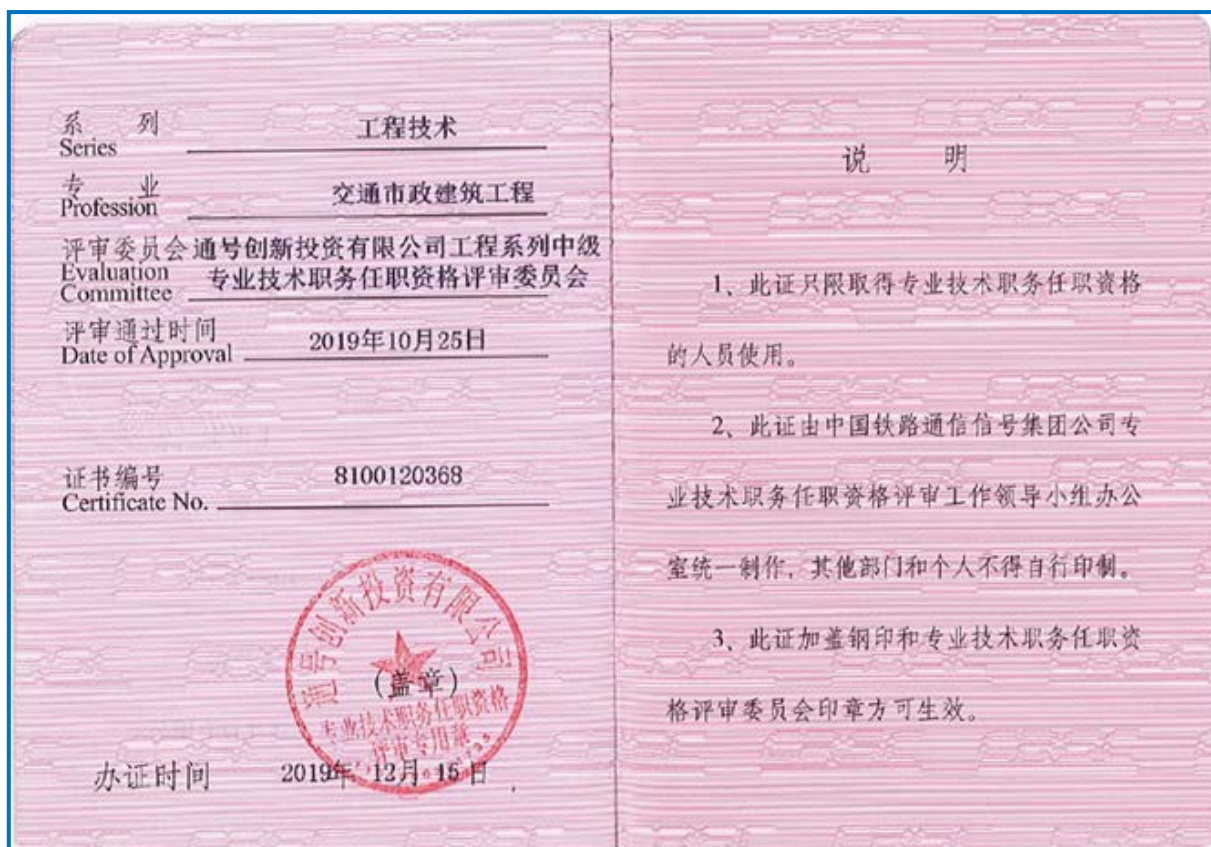 系 列
Series
工程技术
专 业
Profession
交通市政建筑工程
评审委员会
Evaluation
Committee
通号创新投资有限公司工程系列中级
专业技术职务任职资格评审委员会
评审通过时间
Date of Approval
2019年10月25日
证书编号
Certificate No.
8100120368
通号创新投资有限公司
(盖章)
专业技术职务任职资格
评审专用章
办证时间
2019年 12月 15日
说 明
1、此证只限取得专业技术职务任职资格
的人员使用。
2、此证由中国铁路通信信号集团公司专
业技术职务任职资格评审工作领导小组办公
室统一制作，其他部门和个人不得自行印制。
3、此证加盖钢印和专业技术职务任职资
格评审委员会印章方可生效。